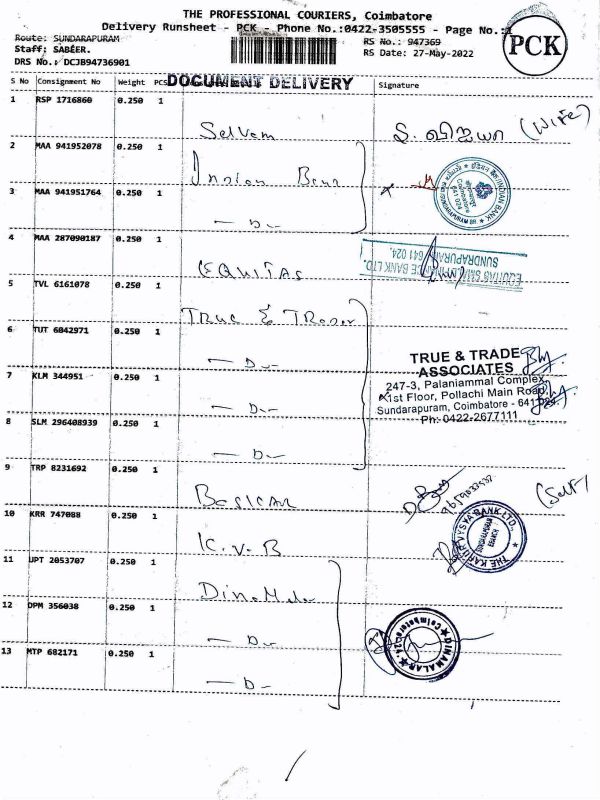 THE PROFESSIONAL COURIERS, Coimbatore
Delivery Runsheet - PCK - Phone No.:0422-3505555 - Page No.:1
PCK
Route: SUNDARAPURAM
RS No.: 947369
Staff: SABEER.
RS Date: 27-May-2022
DRS No.: DCJB94736901
DOCUMENT DELIVERY
S No Consignment No Weight PCS Signature
1 RSP 1716860 0.250 1 Selvam (Wife)
2 MAA 941952078 0.250 1 Indian Bank
INDIAN BANK
3 MAA 941951764 0.250 1 — Do —
4 MAA 287090187 0.250 1 EQUITAS
EQUITAS SMALL FINANCE BANK LTD.
SUNDRAPURAM 641 024.
5 TVL 6161078 0.250 1 True & Trader
6 TUT 6042971 0.250 1 — Do —
TRUE & TRADE
ASSOCIATES
247-3, Palaniammal Complex,
1st Floor, Pollachi Main Road,
Sundarapuram, Coimbatore - 641 024.
Ph: 0422-2677111
7 KLM 344951 0.250 1 — Do —
8 SLM 296408939 0.250 1 — Do —
9 TRP 8231692 0.250 1 (Self)
10 KRR 747088 0.250 1 K.V.B
THE KARUR VYSYA BANK LTD.,
SUNDARAPURAM
BRANCH
11 UPT 2053707 0.250 1 Dinamalar
12 DPM 356038 0.250 1 — Do —
DINAMALAR
Coimbatore-24
13 MTP 682171 0.250 1 — Do —